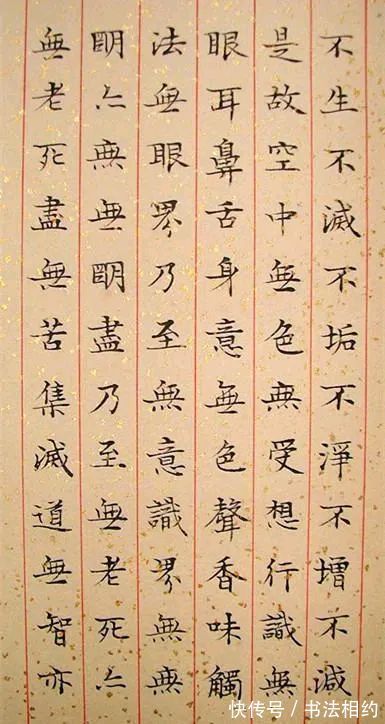 不生不滅不垢不淨不增不減
是故空中無色無受想行識無
眼耳鼻舌身意無色聲香味觸
法無眼界乃至無意識界無無
明亦無無明盡乃至無老死亦
無老死盡無苦集滅道無智亦
快传号 / 书法相约